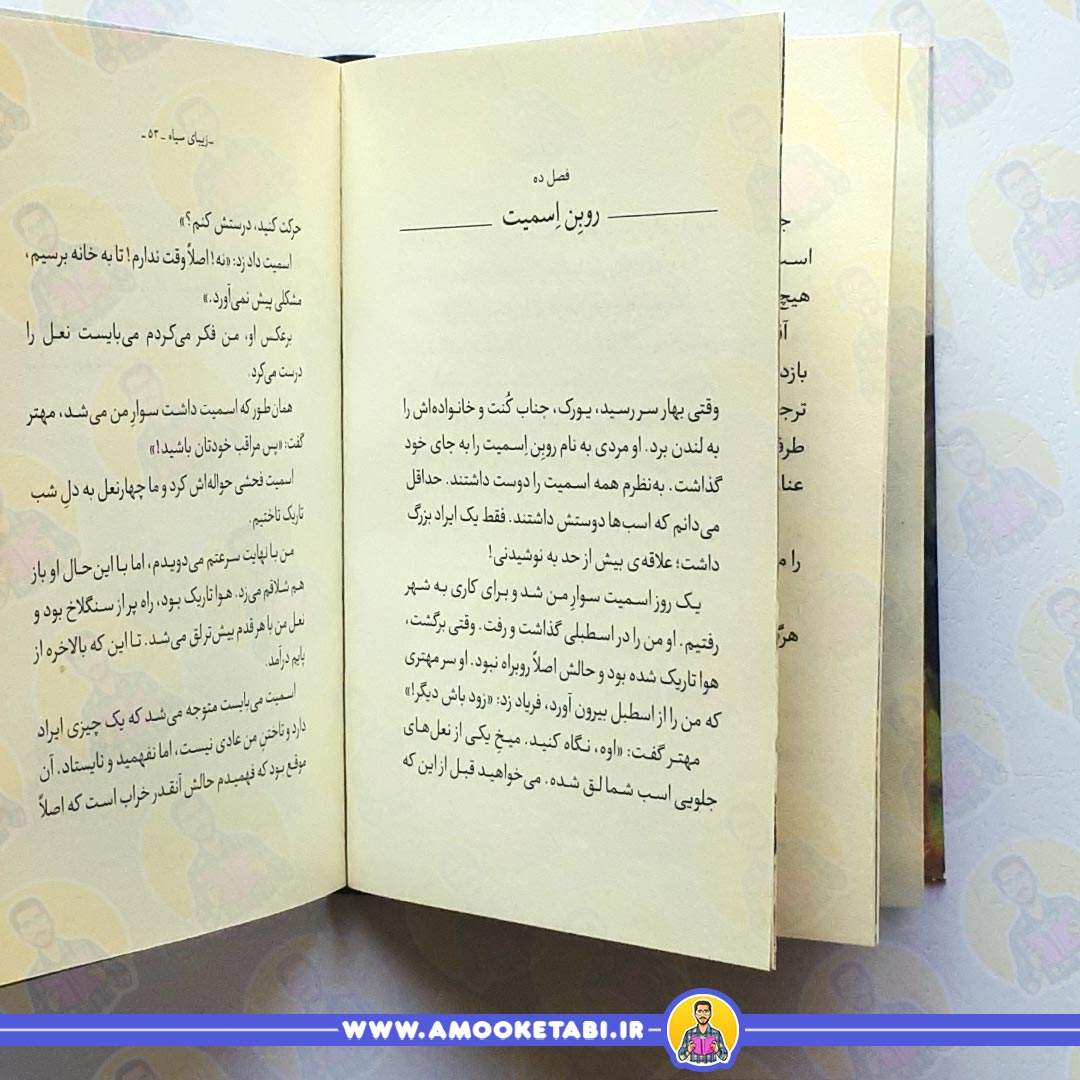 فصل ده
روبِن اِسمیت
وقتی بهار سر رسید، یورک، جناب کُنت و خانواده‌اش را
به لندن برد. او مردی به نام روبِن اِسمیت را به جای خود
گذاشت. به‌نظرم همه اسمیت را دوست داشتند. حداقل
می‌دانم که اسب‌ها دوستش داشتند. فقط یک ایراد بزرگ
داشت؛ علاقه‌ی بیش از حد به نوشیدنی!
یک روز اسمیت سوارِ من شد و برای کاری به شهر
رفتیم. او من را در اسطبلی گذاشت و رفت. وقتی برگشت،
هوا تاریک شده بود و حالش اصلاً روبراه نبود. او سر مهتری
که من را از اسطبل بیرون آورد، فریاد زد: «زود باش دیگر!»
مهتر گفت: «اوه، نگاه کنید. میخِ یکی از نعل‌های
جلویی اسب شما لق شده. می‌خواهید قبل از این که
ـ زیبای سیاه ـ ۵۳ ـ
حرکت کنید، درستش کنم؟»
اسمیت داد زد: «نه! اصلاً وقت ندارم! تا به خانه برسیم،
مشکلی پیش نمی‌آورد.»
برعکس او، من فکر می‌کردم می‌بایست نعل را
درست می‌کرد.
همان‌طور که اسمیت داشت سوارِ من می‌شد، مهتر
گفت: «پس مراقب خودتان باشید!»
اسمیت فحشی حواله‌اش کرد و ما چهارنعل به دلِ شب
تاریک تاختیم.
من با نهایت سرعتم می‌دویدم، اما با این‌حال او باز
هم شلاقم می‌زد. هوا تاریک بود، راه پر از سنگلاخ بود و
نعل من با هر قدم بیش‌تر لق می‌شد. تا این که بالاخره از
پایم درآمد.
اسمیت می‌بایست متوجه می‌شد که یک چیزی ایراد
دارد و تاختنِ من عادی نیست، اما نفهمید و نایستاد. آن
موقع بود که فهمیدم حالش آنقدر خراب است که اصلاً
هیچ
بازد
ترجم
طرف
عنا
را م
هرگ
WWW.AMOOKETABI.IR